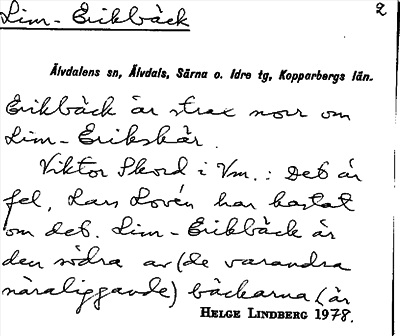 Lim-Erikbäck 2
Älvdalens sn, Älvdals, Särna o. Idre tg, Kopparbergs län.
Erikbäck är strax norr om
Lim-Erikskär.
Viktor Skord i Vm.: Det är
fel, Lars Lovén har kastat
om det. Lim-Erikbäck är
den södra av (de varandra
näraliggande) bäckarna (är
HELGE LINDBERG 1978.